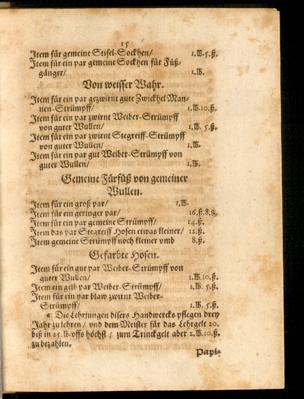 15
Item für gemeine Stifel-Sockhen/ 1.℔.5.ß.
Item für ein par gemeine Sockhen für Füß-
gänger/ 1.℔.
Von weisser Wahr.
Item für ein par gezwirnt gute Zwickhel Man-
nen-Strümpff/ 1.℔.10.ß.
Item für ein par zwirnt Weiber-Strümpff
von guter Wullen/ 1.℔.5.ß.
Item für ein par zwirnt Stegreiff-Strümpff
von guter Wullen/ 1.℔.
Item für ein par gut Weiber-Strümpff von
guter Wullen/ 1.℔.
Gemeine Fürfüß von gemeiner
Wullen.
Item für ein groß par/ 1.℔.
Item für ein geringer par/ 16.ß.8.
Item für ein par gemeine Strümpf/ 14.ß.
Item das par Stegreiff Hosen etwas kleiner/ 12.ß.
Item gemeine Strümpff noch kleiner vmb 8.ß.
Gefärbte Hosen.
Item für ein gut par Weiber-Strümpff von
guter Wullen/ 1.℔.10.ß.
Item ein gelb par Weiber-Strümpff/ 1.℔.5.ß.
Item für ein par blaw zwirnt Weiber-
Strümpff/ 1.℔.5.ß.
Die Lehrjungen disers Handwercks pflegen drey
Jahr zu lehren/ vnd dem Meister für das Lehrgelt 20.
biß in 25.℔. offs höchst/ zum Trinckgelt aber 2.℔.10.ß.
zu bezahlen.
Papi-